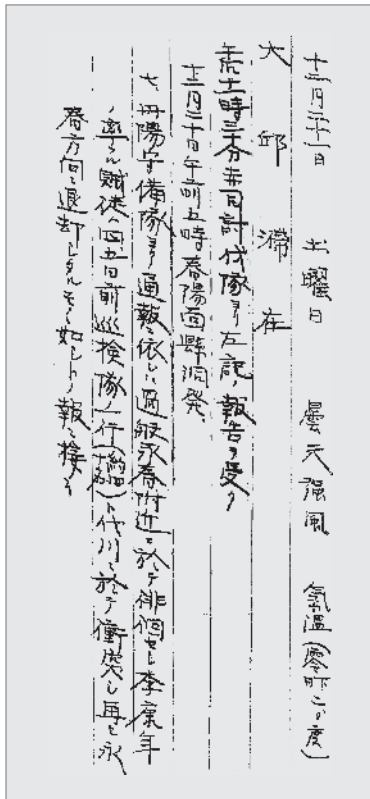 十二月二十一日 土曜日 曇天強風 氣温(零下二〇度)
大邱滯在
午后十一時三十分赤司討伐隊ヨリ左記ノ報告ヲ受ク
十二月二十日午前五時春陽面縣洞発
七、丹陽守備隊ヨリ通報ニ依レハ過般永春附近ニ於テ徘徊セシ李康年
ノ率ユル賊徒ハ四五日前巡検隊ノ一行ト代川ニ於テ衝突シ再ヒ永
春方向ニ退却シタルモノヽ如シトノ報ニ接ス